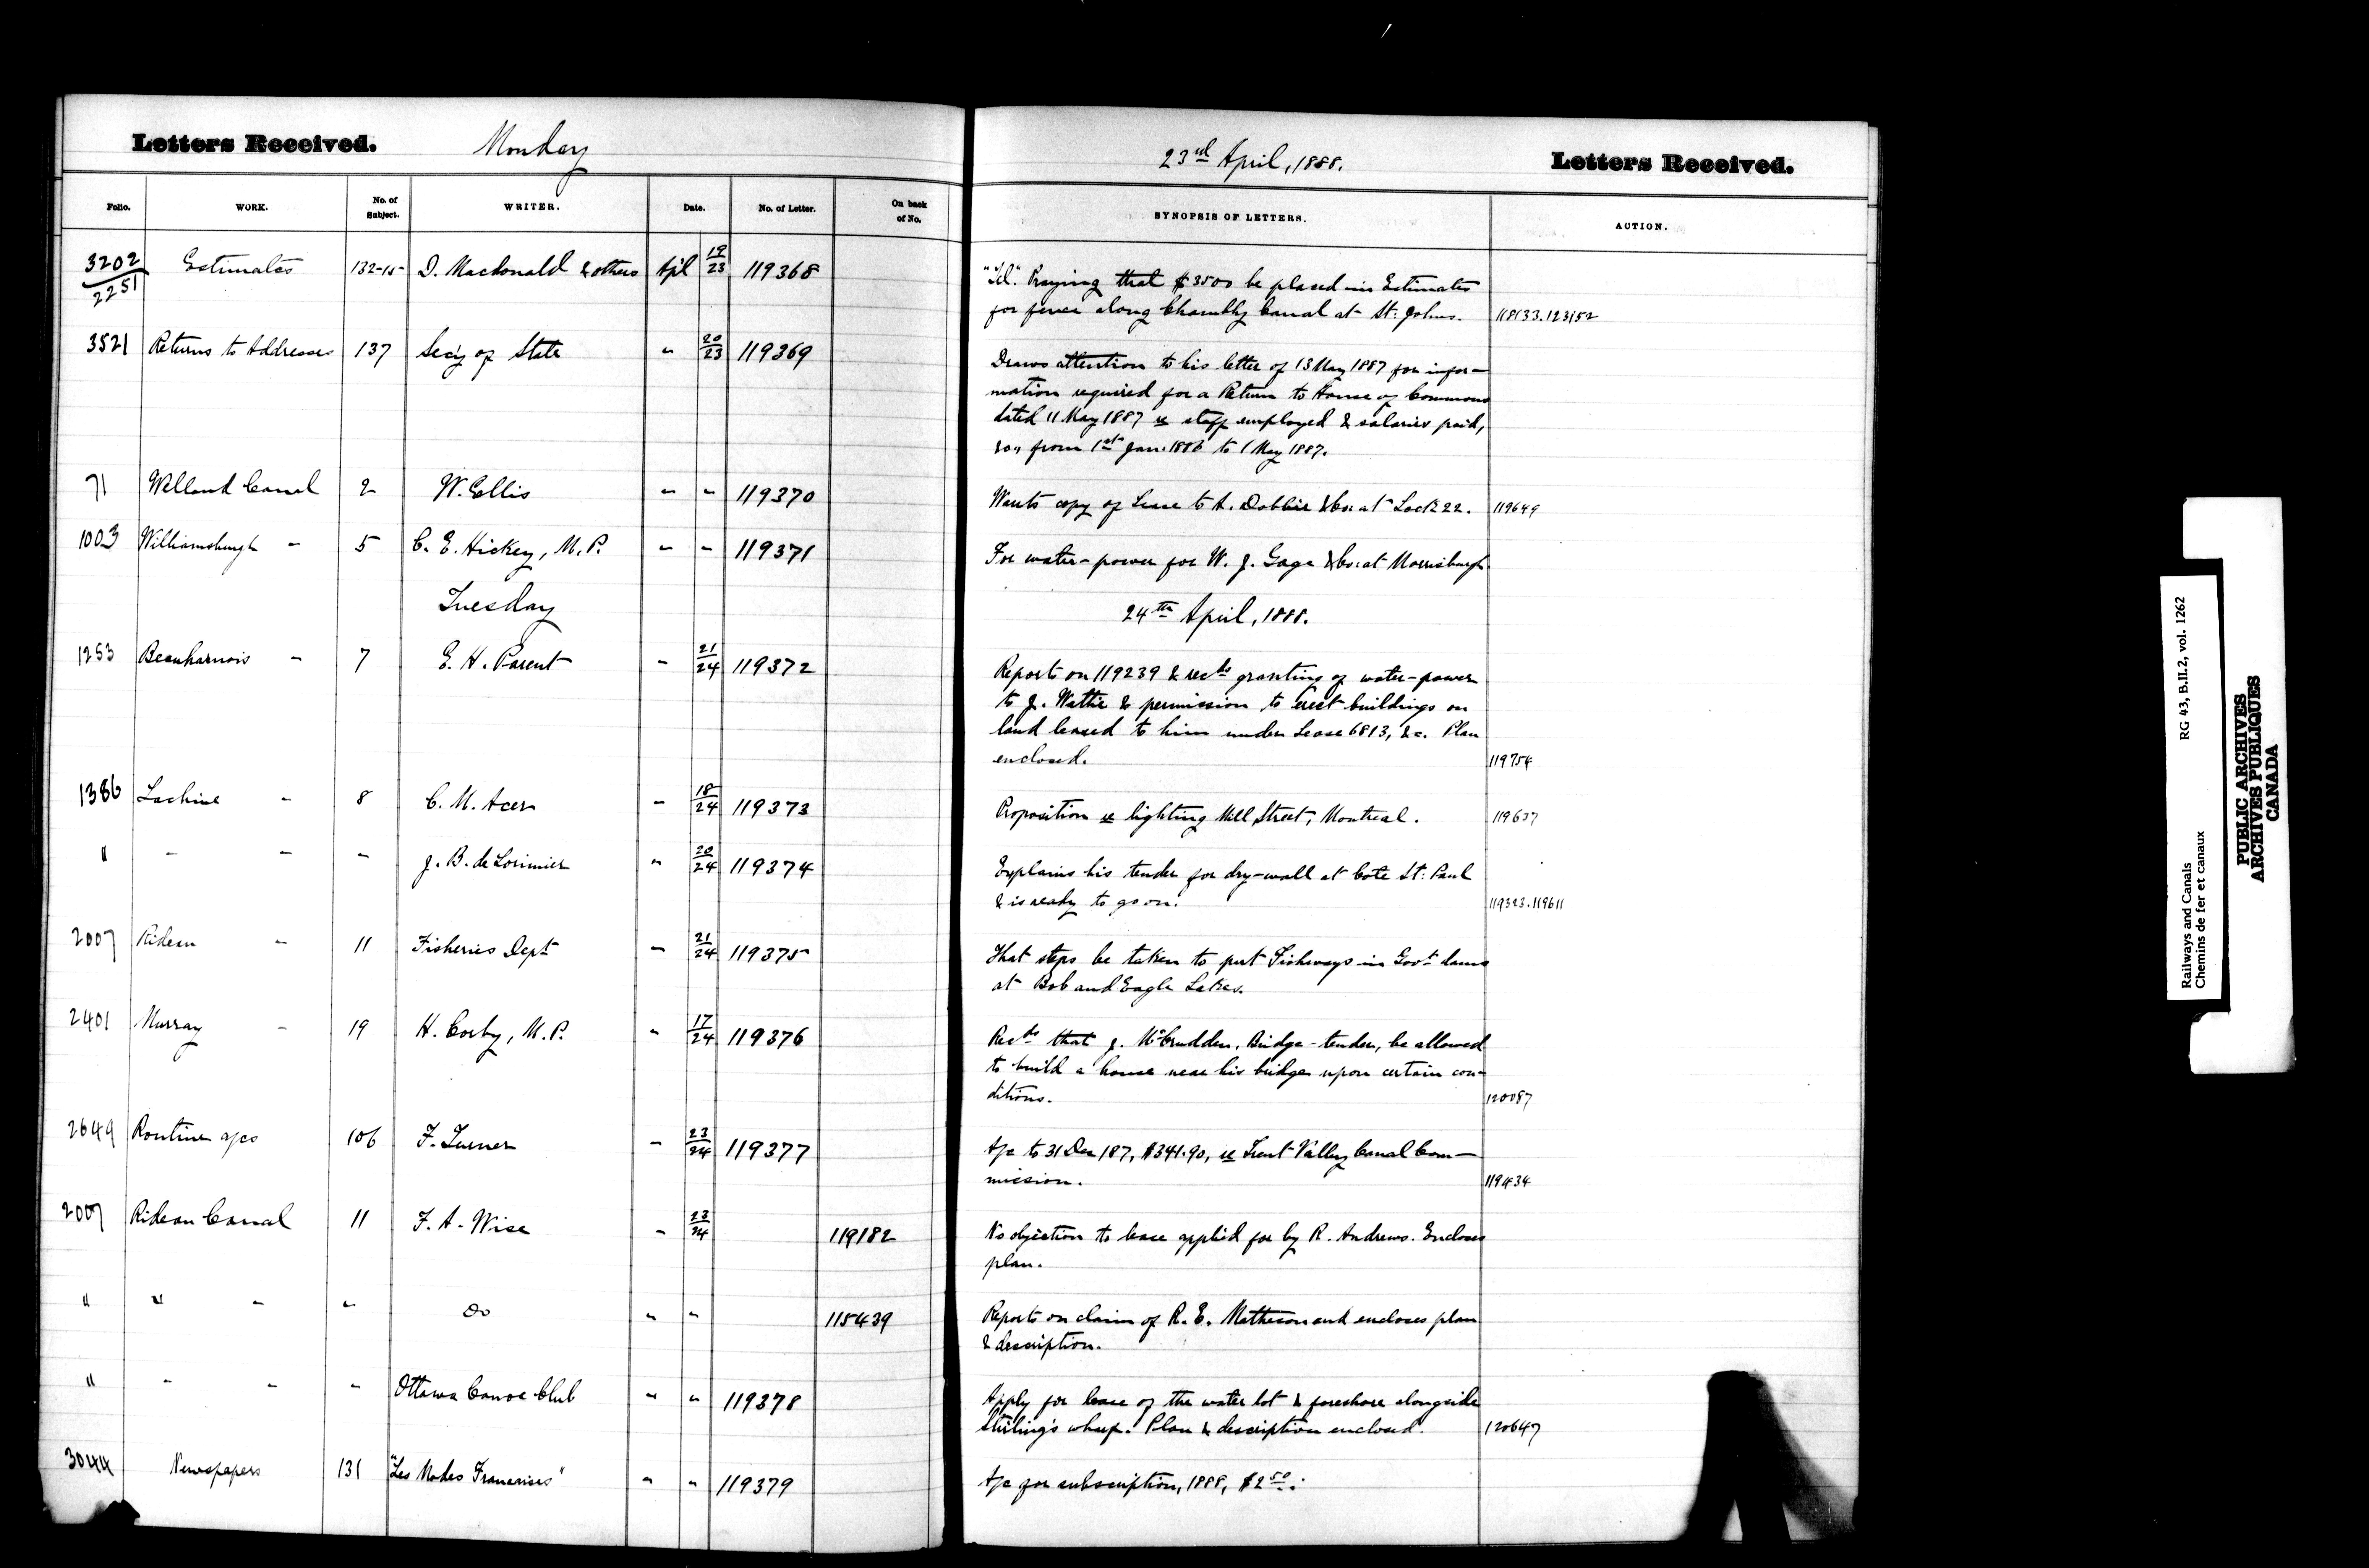 Letters Received. Monday 23rd April, 1888. Letters Received.
Folio. WORK. No. of Subject. WRITER. Date. No. of Letter. On back of No. SYNOPSIS OF LETTERS. ACTION.
3202/2251 Estimates 132-15 D. Macdonald & others Apl 19/23 119368 "Tel". Praying that $3500 be placed in Estimates
for fence along Chambly Canal at St: Johns. 118133.123152
3521 Returns to Addresses 137 Sec'y of State " 20/23 119369 Draws attention to his letter of 13 May 1887 for infor-
mation required for a Return to House of Commons
dated 11 May 1887 re staff employed & salaries paid,
&c, from 1st Jan. 1886 to 1 May 1887.
71 Welland Canal 2 W. Ellis " " 119370 Wants copy of Lease to A. Dobbie & Co. at Lock 22. 119649
1003 Williamsburgh " 5 C. E. Hickey, M.P. " " 119371 For water-power for W. J. Gage & Co: at Morrisburgh
Tuesday 24th April, 1888.
1253 Beauharnois " 7 E. H. Parent " 21/24 119372 Reports on 119239 & recds granting of water-power
to J. Wattie & permission to erect buildings on
land leased to him under Lease 6813, &c. Plan
enclosed. 119754
1386 Lachine " 8 C. M. Acer " 18/24 119373 Proposition re lighting Mill Street, Montreal. 119637
" " " " J. B. de Lorimier " 20/24 119374 Explains his tender for dry-wall at Cote St: Paul
& is ready to go on. 119323.119611
2007 Rideau " 11 Fisheries Dept " 21/24 119375 That steps be taken to put Fishways in Govt dams
at Bob and Eagle Lakes.
2401 Murray " 19 H. Corby, M.P. " 17/24 119376 Recds that J. McCrudden, Bridge-tender, be allowed
to build a house near his bridge upon certain con-
ditions. 120087
2649 Routine a/cs 106 F. Turner " 23/24 119377 A/c to 31 Dec 187, $341.90, re Trent Valley Canal Com-
mission. 119434
2007 Rideau Canal 11 F. A. Wise " 23/24 119182 No objection to lease applied for by R. Andrews. Encloses
plan.
" " " " Do " " 115439 Reports on claim of R. E. Matheson and encloses plan
& description.
" " " " Ottawa Canoe Club " " 119378 Apply for lease of the water lot & foreshore alongside
Stirling's wharf. Plan & description enclosed. 120647
3044 Newspapers 131 "Les Modes Francaises" " " 119379 A/c for subscription, 1888, $2.50.
Railways and Canals RG 43, B.II.2, vol. 1262
Chemins de fer et canaux
PUBLIC ARCHIVES
ARCHIVES PUBLIQUES
CANADA